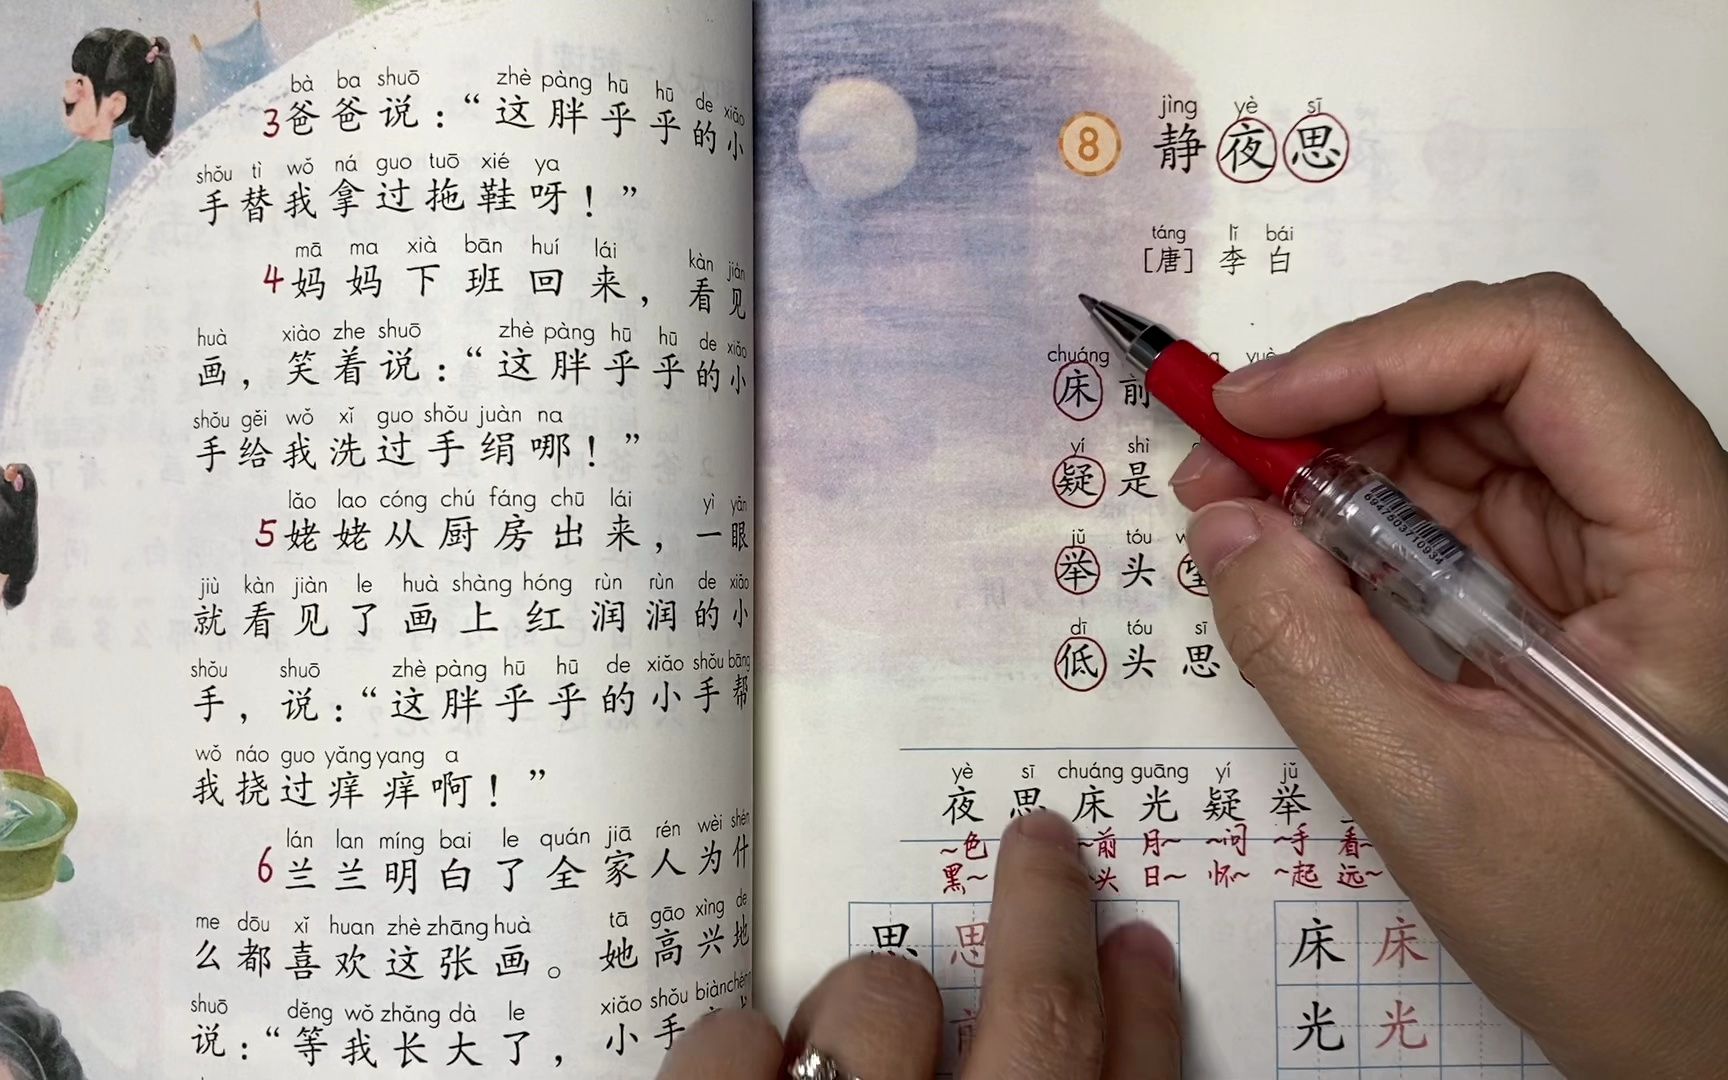 bà ba shuō zhè pàng hū hū de xiǎo
3爸爸说：“这胖乎乎的小
shǒu tì wǒ ná guo tuō xié ya
手替我拿过拖鞋呀！”
mā ma xià bān huí lái kàn jiàn
4妈妈下班回来，看见
huà xiào zhe shuō zhè pàng hū hū de xiǎo
画，笑着说：“这胖乎乎的小
shǒu gěi wǒ xǐ guo shǒu juàn na
手给我洗过手绢哪！”
lǎo lao cóng chú fáng chū lái yì yǎn
5姥姥从厨房出来，一眼
jiù kàn jiàn le huà shàng hóng rùn rùn de xiǎo
就看见了画上红润润的小
shǒu shuō zhè pàng hū hū de xiǎo shǒu bāng
手，说：“这胖乎乎的小手帮
wǒ náo guo yǎng yang a
我挠过痒痒啊！”
lán lan míng bai le quán jiā rén wèi shén
6兰兰明白了全家人为什
me dōu xǐ huan zhè zhāng huà tā gāo xìng de
么都喜欢这张画。她高兴地
shuō děng wǒ zhǎng dà le xiǎo shǒu biàn chéng
说：“等我长大了，小手
jìng yè sī
8 静夜思
táng lǐ bái
［唐］李白
chuáng yuè
床前
yí shì
疑是
jǔ tóu
举头望
dī tóu sī
低头思
yè sī chuáng guāng yí jǔ
夜思床光疑举
~色 ~前 月~ ~问 ~手 看~
黑~ ~头 日~ 怀~ ~起 远~
思 思 床 床
前 光 光